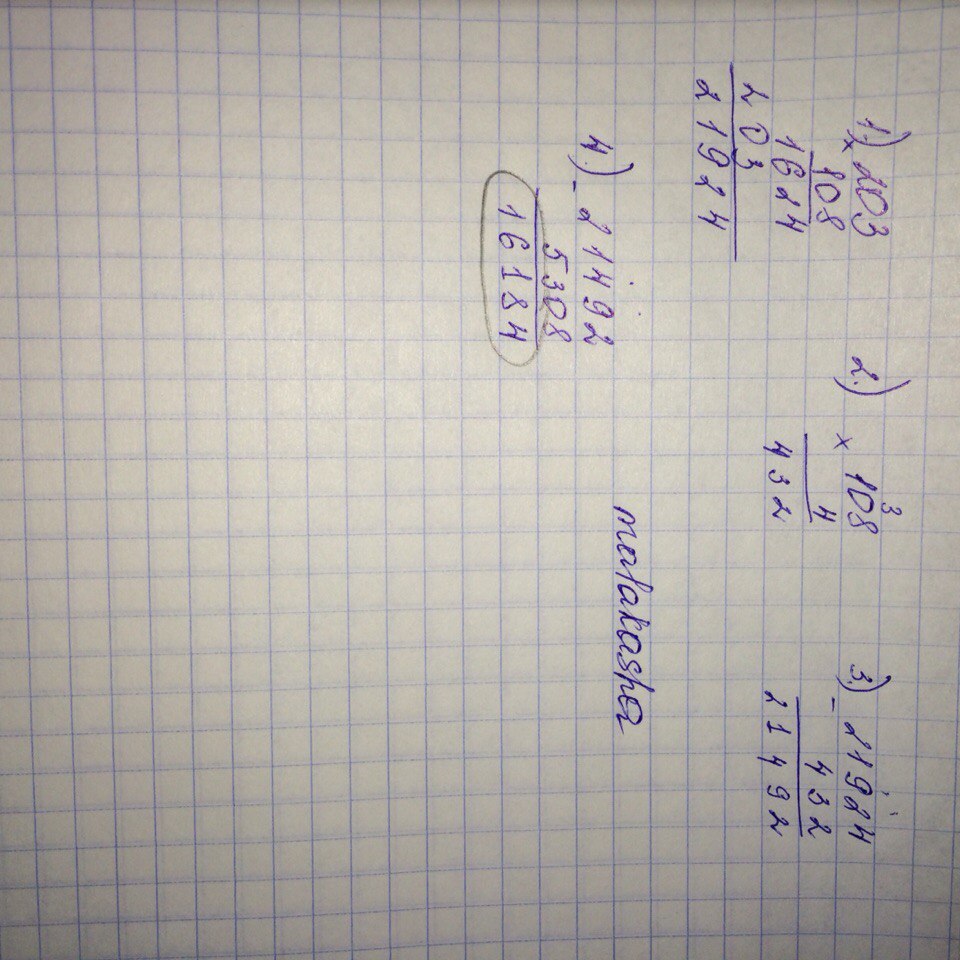 1.) × 203
108
1624
203
21924
2.) × 108
3
4
432
3.) - 21924
432
21492
4.) - 21492
5308
16184
malakasha